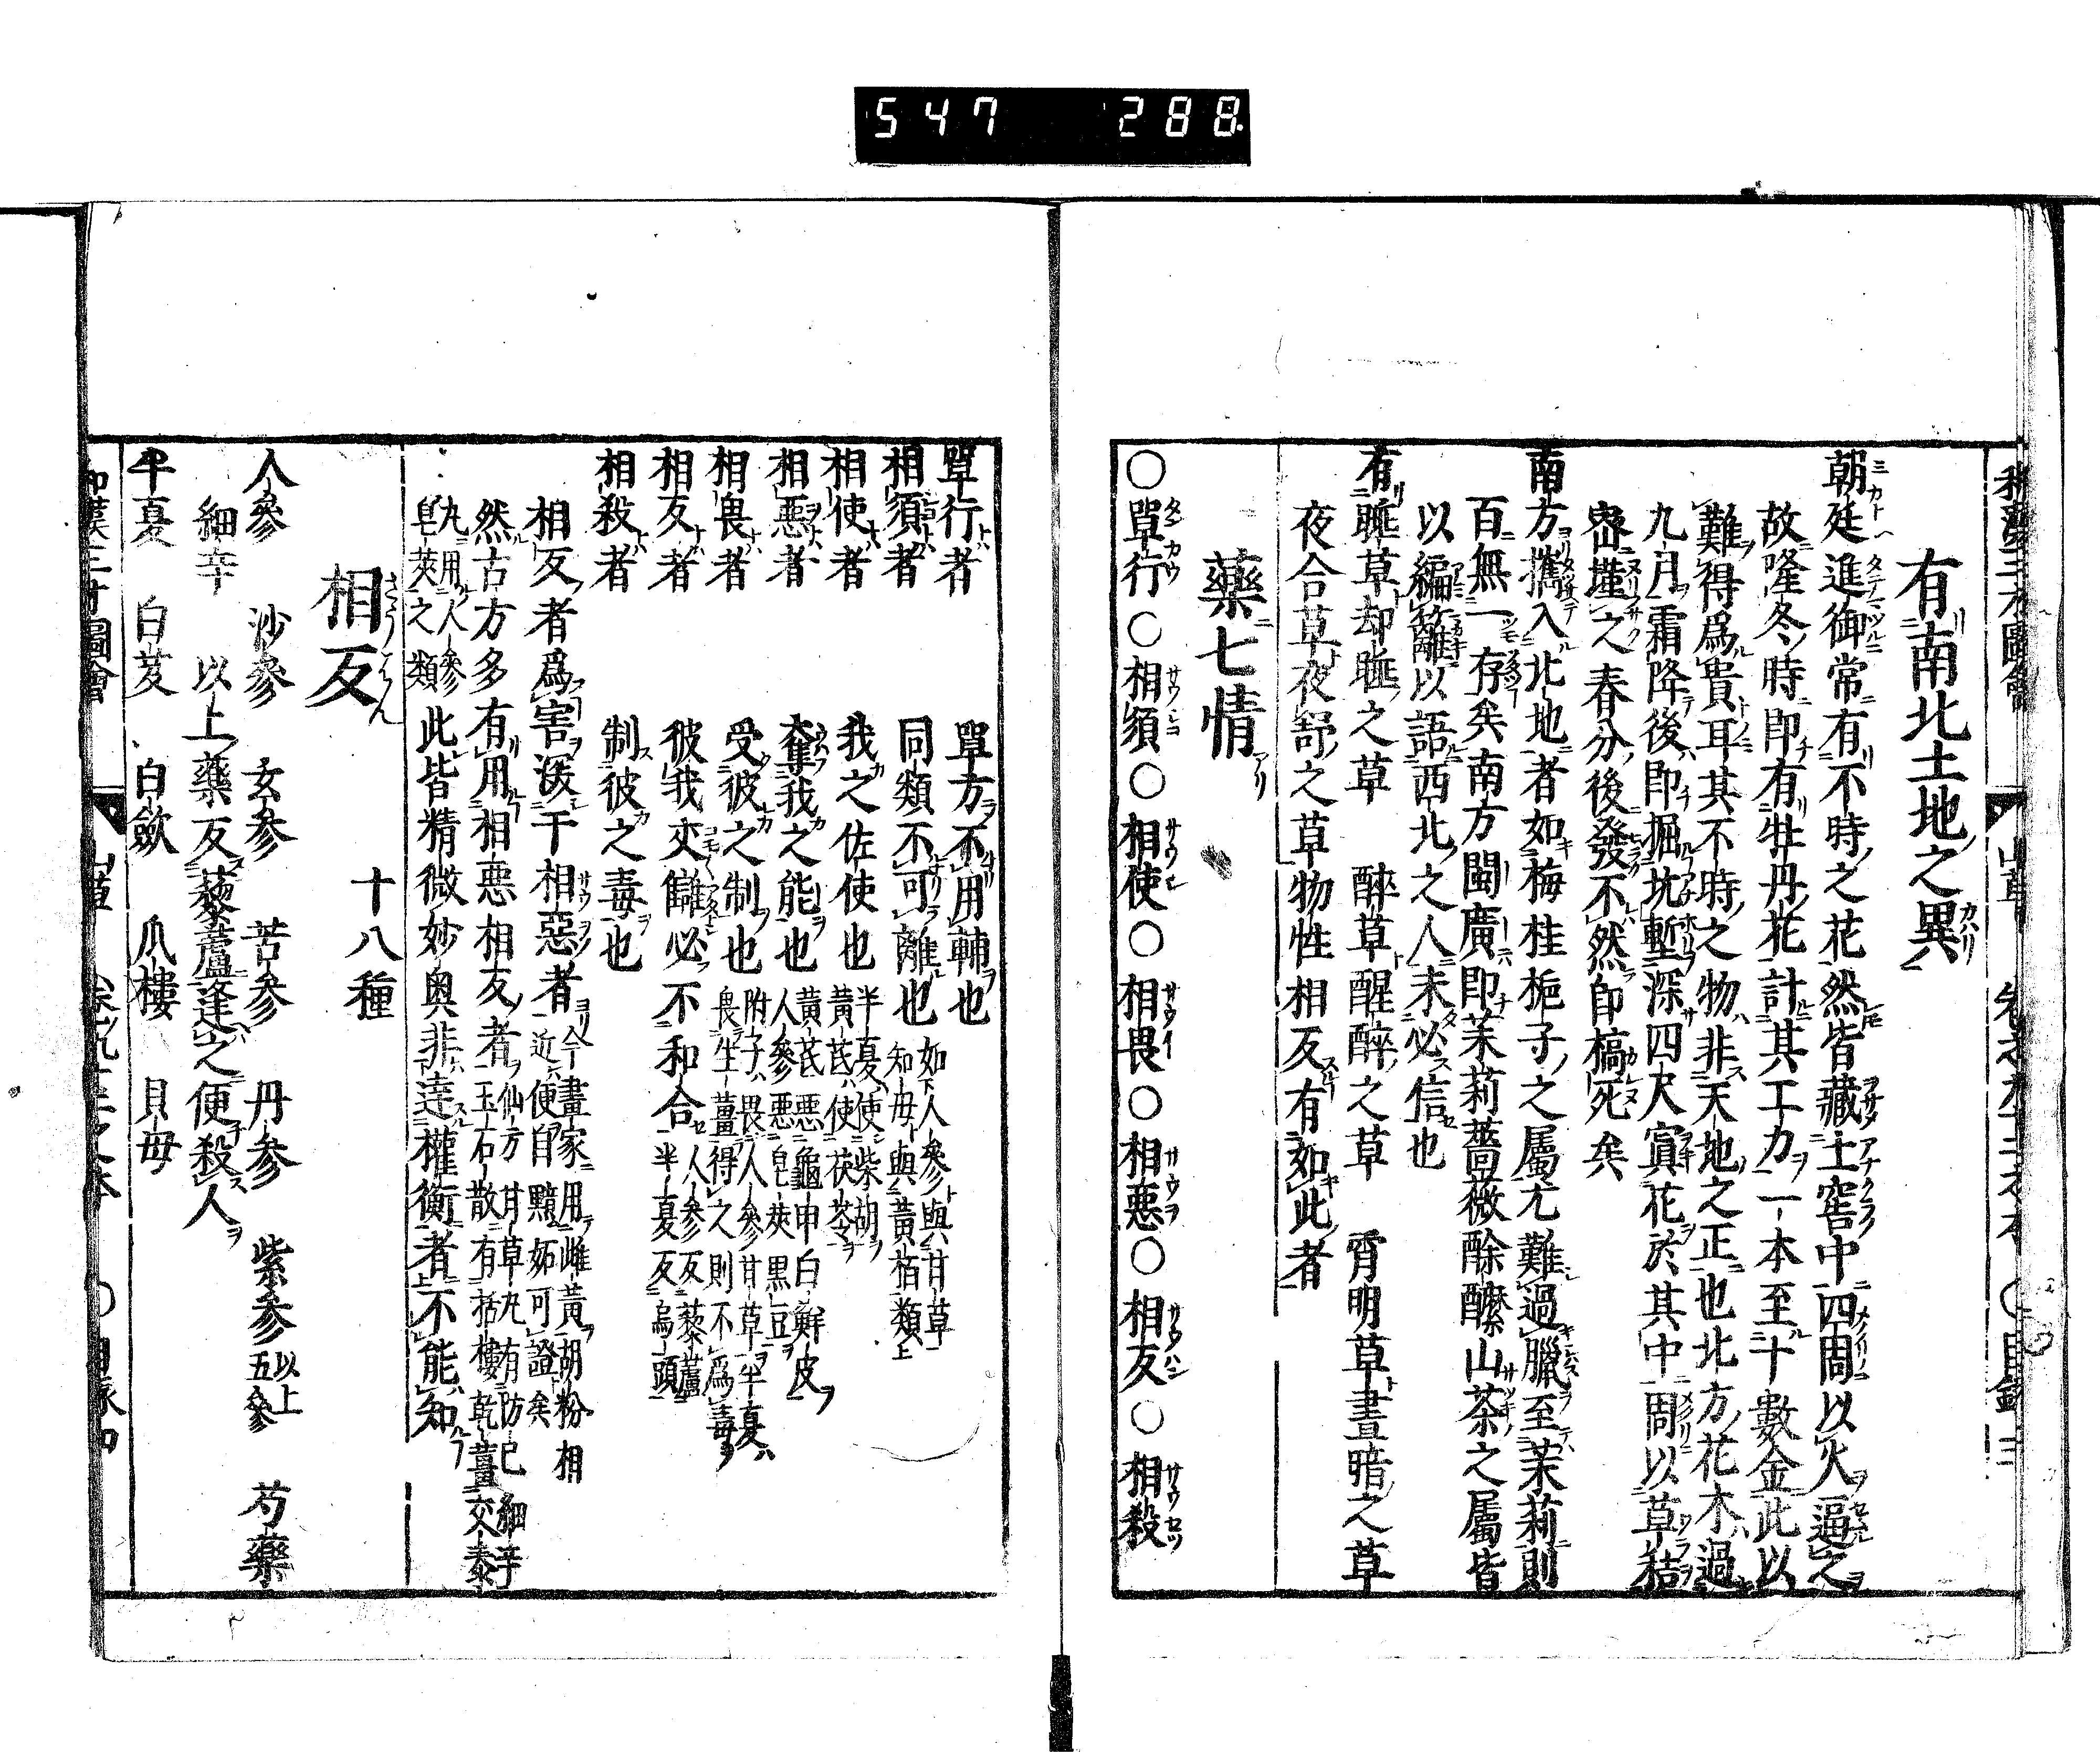 547 288
有南北土地之異
朝廷進御常有不時之花然皆藏土窖中四周以火逼之
故隆冬時即有牡丹花計其工力一本至十數金此以
難得爲貴耳其不時之物非天地之正也北方花木過
九月霜降後即掘坑塹深四尺窴花於其中周以草秸
密墐之春分後發不然即槁死矣
南方携入北地者如梅桂梔子之屬尤難過臘至茉莉則
百無一存矣南方閩廣即茉莉薔薇酴醿山茶之屬皆
以編籬以語西北之人未必信也
有睡草却睡之草 醉草醒醉之草 宵明草晝暗之草
夜合草夜舒之草物性相反有如此者
藥七情
○單行○相須○相使○相畏○相惡○相反○相殺
單行者 單方不用輔也
相須者 同類不可離也 如下人參與甘草
知母與黃栢類上
相使者 我之佐使也 半夏使柴胡
黃芪使茯苓
相惡者 奪我之能也 黃芪惡龜甲白鮮皮
人參惡皂莢黒豆
相畏者 受彼之制也 附子畏人參甘草半夏
畏生薑得之則不爲毒
相反者 彼我交讎必不和合 人參反藜蘆
半夏反烏頭
相殺者 制彼之毒也
相反者爲害深于相惡者 今畫家用雌黃胡粉相
近便自黯妬可證矣
然古方多有用相惡相反者 仙方甘草丸有防己細辛
玉石散有栝樓乾薑交泰
丸用人參
皂莢之類 此皆精微妙奥非達權衡者不能知
相反 十八種
人參 沙參 玄參 苦參 丹參 紫參以上五參 芍藥
細辛 以上藥反藜蘆逢之便殺人
半夏 白芨 白歛 瓜樓 貝母